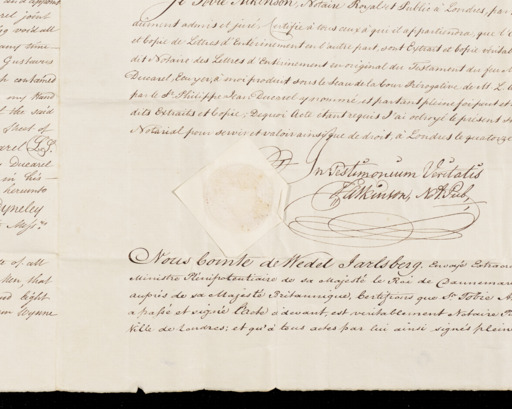 and appoint
Ducarel joint
any world all
any time
Gustavus
h contained
my Hand
t the said
Sheet of
arel L.S.
Ducarel
in his
hereunto
Dyneley
Mess.rs
e of all
ken, that
and Eight
am Wynne
Je Tobie Atkinson, Notaire Royal et Public à Londres, par
duement admis et juré Certifie à tous ceux à qui il appartiendra, que l'
et Copie de Lettres d'Enterinement en l'autre part, sont Extrait et Copie
dit Notaire des Lettres d'Enterinement en original du Testament du feu
Ducarel, Ecuyer, à moi produit sous le Sceau de la Cour Prérogative de
par le S.r Philippe Jean Ducarel y nommé, et partant pleine foi peut et
dits Extraits et Copie; De quoi Acte étant requis J'ai octroyé le présent
Notarial pour servir et valoir ainsi que de droit, à Londres le quatorze
In Testimonium Veritatis
T Atkinson, Not Pub,
Nous Comte de Wedel Jarlsberg, Envoyé Extraor
Ministre Plénipotentiaire de sa Majesté le Roi de Dannemar
auprès de sa Majesté Britannique, Certifions que S.r Tobie A
a passé et signé l'Acte ci devant, est veritablement Notaire
Ville de Londres; et qu'à tous actes par lui ainsi signés plein